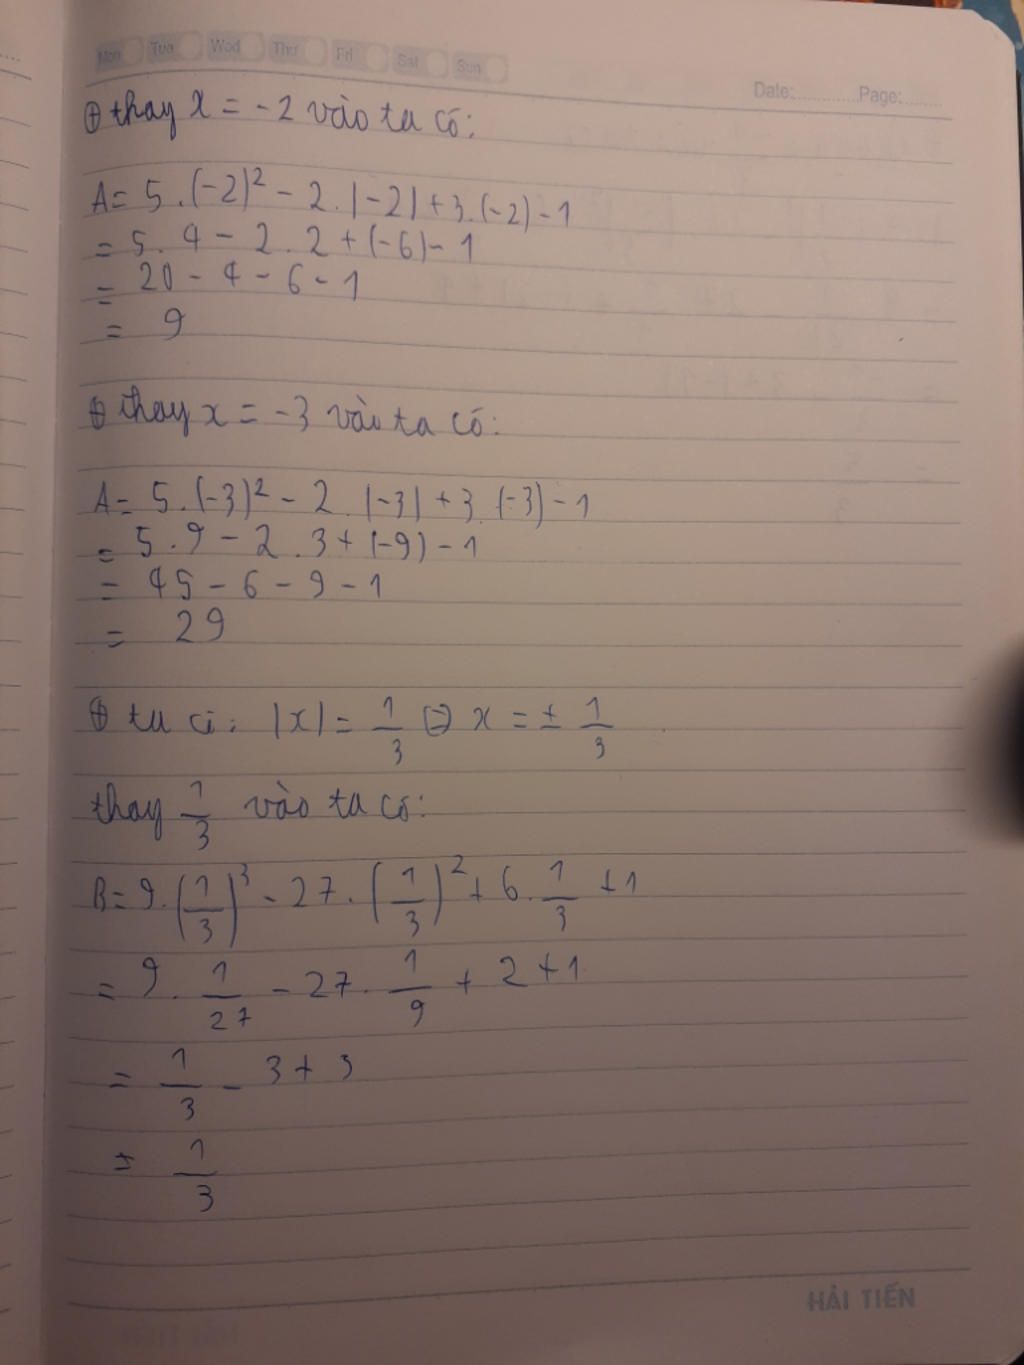 Mon Tue Wed Thu Fri Sat Sun
Date:............Page:........
⊕ thay x = -2 vào ta có:
A= 5.(-2)² - 2.|-2|+3.(-2)-1
= 5. 4 - 2.2 + (-6)-1
= 20 - 4 - 6 - 1
= 9
⊕ thay x = -3 vào ta có:
A= 5.(-3)² - 2.|-3| + 3.(-3)-1
= 5.9 - 2.3+(-9)-1
= 45 - 6 - 9 - 1
= 29
⊕ ta có: |x| = 1/3 ⇔ x = ± 1/3
thay 1/3 vào ta có:
B= 9.(1/3)³ - 27.(1/3)² + 6.1/3 +1
= 9.1/27 - 27.1/9 + 2+1
= 1/3 - 3+3
= 1/3
HẢI TIẾN